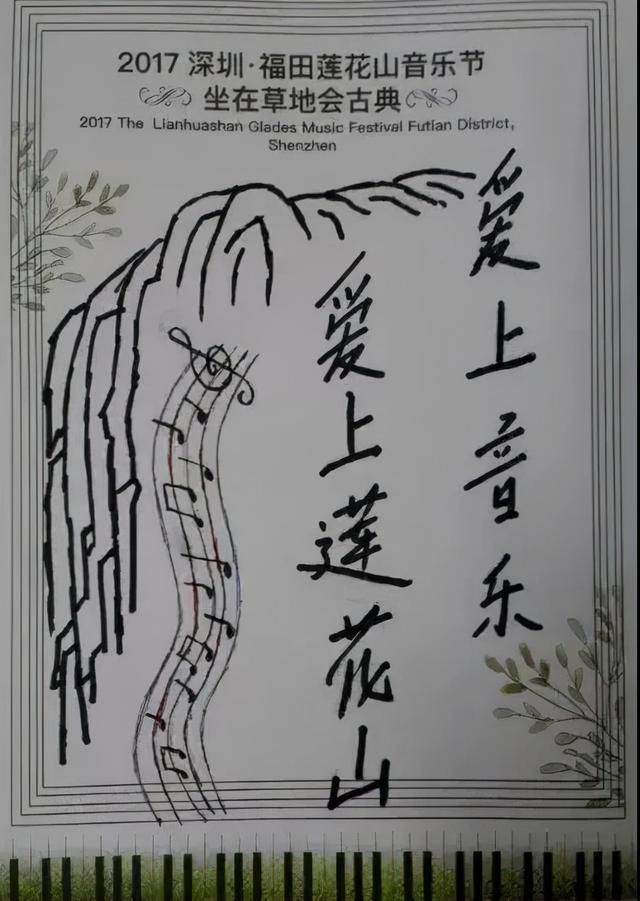 2017 深圳·福田莲花山音乐节
坐在草地会古典
2017 The Lianhuashan Glades Music Festival Futian District,
Shenzhen
爱上音乐
爱上莲花山